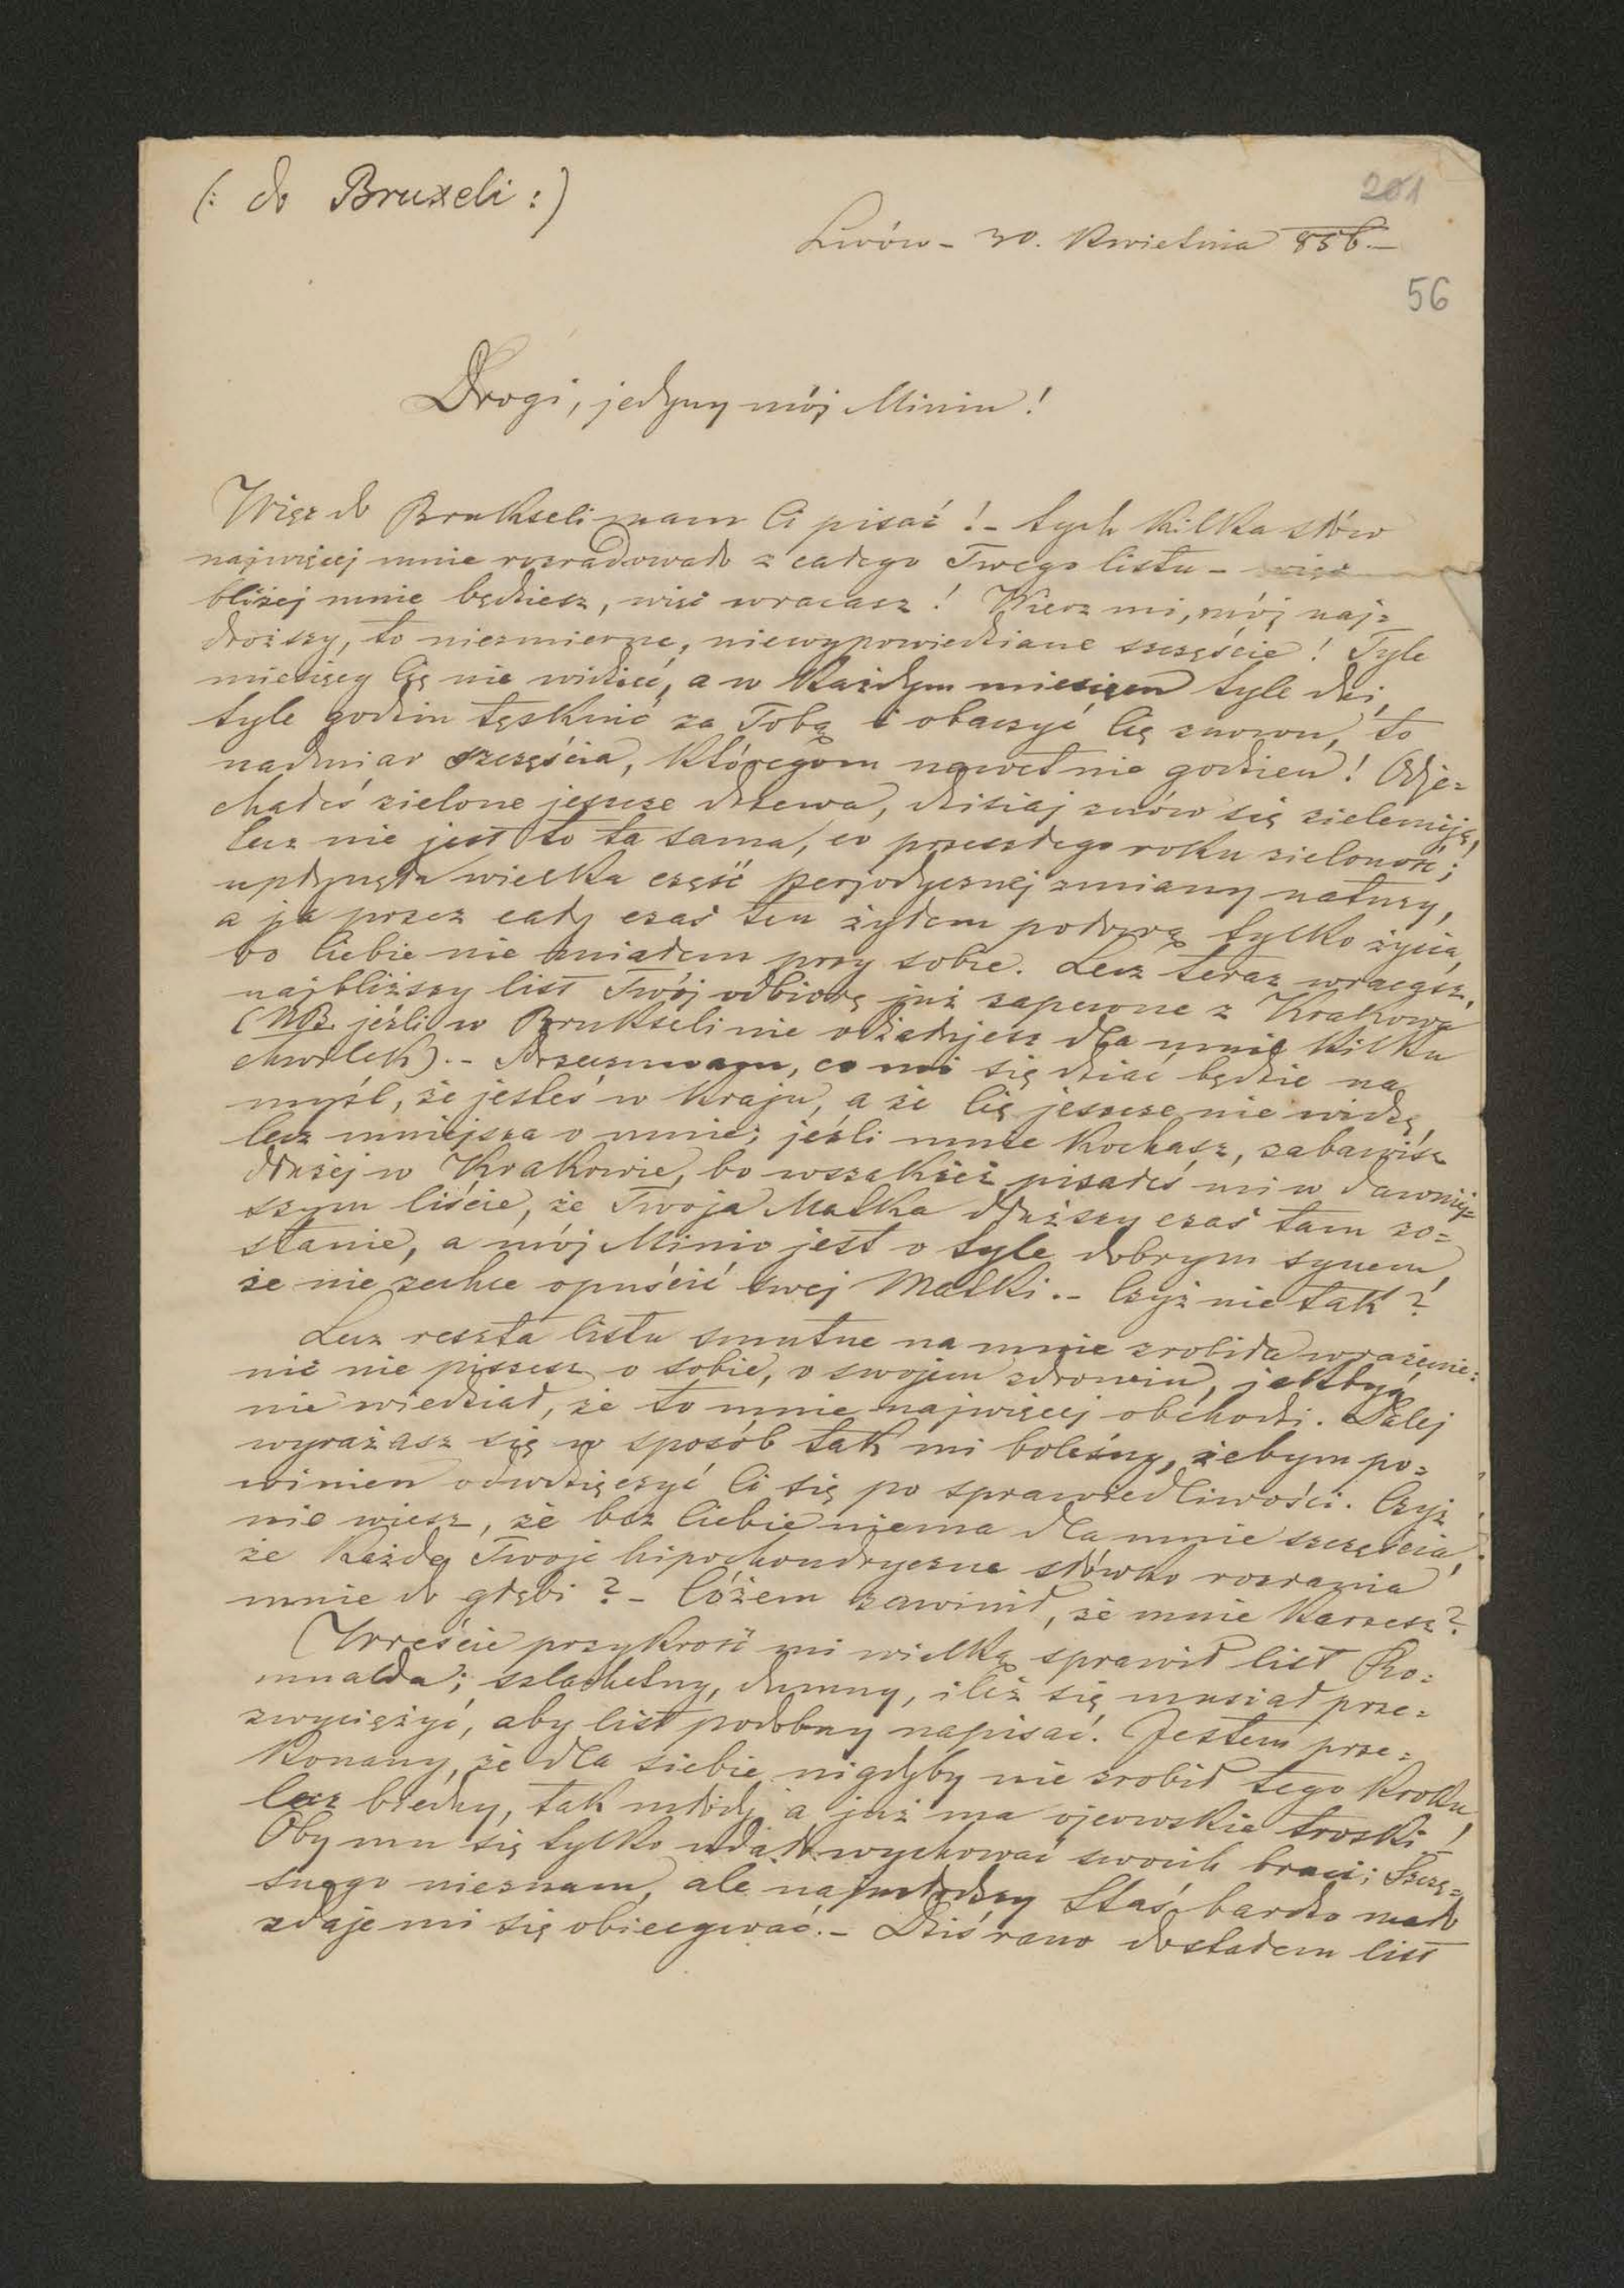 (: do Bruxeli :)
201
Lwów - 30. Kwietnia 856. -
56
Drogi, jedyny mój Miniu!
Więc do Brukseli mam Ci pisać! - tych kilka słów
najwięcej mnie rozradowało z całego Twego listu - więc
bliżej mnie będziesz, więc wracasz! Wierz mi, mój naj=
droższy, to niezmierne, niewypowiedziane szczęście! Tyle
miesięcy Cię nie widzieć, a w każdym miesiącu tyle dni,
tyle godzin tęsknić za Tobą i obaczyć Cię znowu, to
nadmiar szczęścia, któregom nawet nie godzien! Odje=
chałeś zielone jeszcze drzewa, dzisiaj znów się zielenieją,
lecz nie jest to ta sama, co przeszłego roku zieloność;
upłynęła wielka część perjodycznej zmiany natury,
a ja przez cały czas ten żyłem połową tylko życia,
bo Ciebie nie miałem przy sobie. Lecz teraz wracasz,
najbliższy list Twój odbiorę już zapewne z Krakowa
(NB. jeżli w Brukseli nie odżałujesz dla mnie kilku
chwilek). - Przeczuwam, co mi się dziać będzie na
myśl, że jesteś w kraju, a że Cię jeszcze nie widzę,
lecz mniejsza o mnie; jeżli mnie kochasz, zabawisz
dłużej w Krakowie, bo wszakżeż pisałeś mi w dawniej=
szym liście, że Twoja Matka dłuższy czas tam zo=
stanie, a mój Minio jest o tyle dobrym synem,
że nie zechce opuścić swej Matki. - Czyż nie tak?
Lecz reszta listu smutne na mnie zrobiła wrażenie:
nic nie piszesz o sobie, o swojem zdrowiu, jakbyś
nie wiedział, że to mnie najwięcej obchodzi. Dalej
wyrażasz się w sposób tak mi boleśny, żebym po=
winien odwdzięczyć Ci się po sprawiedliwości. Czyż
nie wiesz, że bez Ciebie niema dla mnie szczęścia,
że każde Twoje hipochondryczne słówko rozrania
mnie do głębi? - Cóżem zawinił, że mnie karzesz?
Wreście przykrość mi wielką sprawił list Ro=
mualda; szlachetny, dumny, ileż się musiał prze=
zwyciężyć, aby list podobny napisać. Jestem prze=
konany, że dla siebie nigdyby nie zrobił tego kroku,
lecz biedny, tak młody, a już ma ojcowskie troski!
Oby mu się tylko udało wychować swoich braci; Szczę=
snego nieznam, ale najmłodszy Staś bardzo mało
zdaje mi się obiecywać. - Dziś rano dostałem list